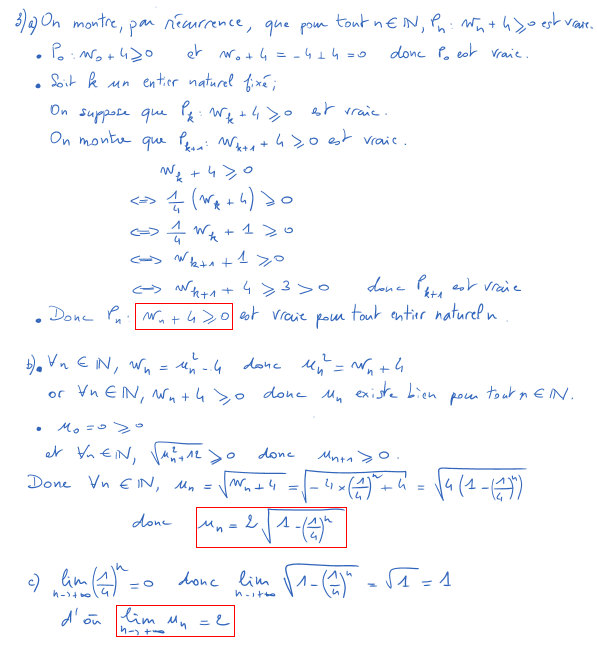 3) a) On montre, par récurrence, que pour tout n ∈ ℕ, Pₙ : wₙ + 4 ⩾ 0 est vraie.
• P₀ : w₀ + 4 ⩾ 0 et w₀ + 4 = -4 + 4 = 0 donc P₀ est vraie.
• Soit k un entier naturel fixé ;
On suppose que Pₖ : wₖ + 4 ⩾ 0 est vraie.
On montre que Pₖ₊₁ : wₖ₊₁ + 4 ⩾ 0 est vraie.
wₖ + 4 ⩾ 0
⟺ 1/4 (wₖ + 4) ⩾ 0
⟺ 1/4 wₖ + 1 ⩾ 0
⟺ wₖ₊₁ + 1 ⩾ 0
⟺ wₖ₊₁ + 4 ⩾ 3 > 0 donc Pₖ₊₁ est vraie
• Donc Pₙ : wₙ + 4 ⩾ 0 est vraie pour tout entier naturel n.
b) • ∀n ∈ ℕ, wₙ = uₙ² - 4 donc uₙ² = wₙ + 4
or ∀n ∈ ℕ, wₙ + 4 ⩾ 0 donc uₙ existe bien pour tout n ∈ ℕ.
• u₀ = 0 ⩾ 0
et ∀n ∈ ℕ, √(uₙ² + 12) ⩾ 0 donc uₙ₊₁ ⩾ 0.
Donc ∀n ∈ ℕ, uₙ = √(wₙ + 4) = √(-4 × (1/4)ⁿ + 4) = √(4 (1 - (1/4)ⁿ))
donc uₙ = 2 √(1 - (1/4)ⁿ)
c) lim n→+∞ (1/4)ⁿ = 0 donc lim n→+∞ √(1 - (1/4)ⁿ) = √1 = 1
d'où lim n→+∞ uₙ = 2